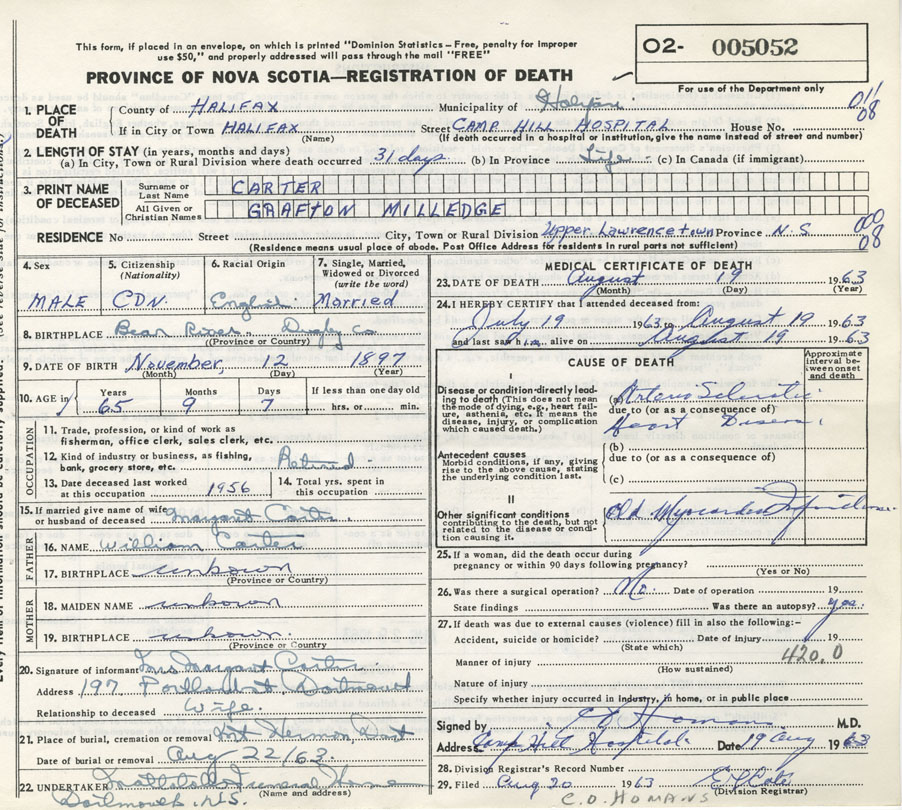 This form, if placed in an envelope, on which is printed "Dominion Statistics – Free, penalty for Improper
use $50," and properly addressed will pass through the mail "FREE"
O2- 005052
For use of the Department only
PROVINCE OF NOVA SCOTIA—REGISTRATION OF DEATH
1. PLACE OF DEATH
County of HALIFAX Municipality of Halifax 011 08
If in City or Town HALIFAX (Name) Street CAMP HILL HOSPITAL House No.
(If death occurred in a hospital or institution, give the name instead of street and number)
2. LENGTH OF STAY (in years, months and days)
(a) In City, Town or Rural Division where death occurred 31 days (b) In Province Life (c) In Canada (if immigrant)
3. PRINT NAME OF DECEASED
Surname or Last Name CARTER
All Given or Christian Names GRAFTON MILLEDGE
RESIDENCE No Street City, Town or Rural Division Upper Lawrencetown Province N.S. 000 08
(Residence means usual place of abode. Post Office Address for residents in rural parts not sufficient)
4. Sex MALE
5. Citizenship (Nationality) CDN.
6. Racial Origin English
7. Single, Married, Widowed or Divorced (write the word) Married
8. BIRTHPLACE Bear River Digby Co
(Province or Country)
9. DATE OF BIRTH November 12 1897
(Month) (Day) (Year)
10. AGE in Years 65 Months 9 Days 7 If less than one day old hrs. or min.
OCCUPATION
11. Trade, profession, or kind of work as
fisherman, office clerk, sales clerk, etc.
12. Kind of industry or business, as fishing,
bank, grocery store, etc. Retired
13. Date deceased last worked
at this occupation 1956
14. Total yrs. spent in
this occupation
15. If married give name of wife
or husband of deceased Margaret Carter
FATHER
16. NAME William Carter
17. BIRTHPLACE unkown
(Province or Country)
MOTHER
18. MAIDEN NAME unkown
19. BIRTHPLACE unkown
(Province or Country)
20. Signature of informant Mrs Margaret Carter
Address 197 Portland St Dartmouth
Relationship to deceased Wife
21. Place of burial, cremation or removal Mt Hermon, Dart
Date of burial or removal Aug 22/63
22. UNDERTAKER Funeral Home
(Name and address)
Dartmouth, N.S.
MEDICAL CERTIFICATE OF DEATH
23. DATE OF DEATH August 19 1963
(Month) (Day) (Year)
24. I HEREBY CERTIFY that I attended deceased from:
July 19 1963 to August 19 1963
and last saw him alive on August 19 1963
CAUSE OF DEATH
Approximate interval between onset and death
I
Disease or condition directly leading to death (This does not mean the mode of dying, e.g., heart failure, asthenia, etc. It means the disease, injury, or complication which caused death.)
(a) Arterio Sclerotic
due to (or as a consequence of)
Heart Disease
Antecedent causes
Morbid conditions, if any, giving rise to the above cause, stating the underlying condition last.
(b)
due to (or as a consequence of)
(c)
II
Other significant conditions
contributing to the death, but not related to the disease or condition causing it.
Old Myocardial Infarction
25. If a woman, did the death occur during
pregnancy or within 90 days following pregnancy?
(Yes or No)
26. Was there a surgical operation? No. Date of operation 19
State findings Was there an autopsy? yes.
27. If death was due to external causes (violence) fill in also the following:-
Accident, suicide or homicide? Date of injury 19
(State which)
420.0
Manner of injury
(How sustained)
Nature of injury
Specify whether injury occurred in industry, in home, or in public place
Signed by C D Homans M.D.
Address Camp Hill Hospital Date 19 Aug 1963
28. Division Registrar's Record Number
29. Filed Aug 20 1963
(Division Registrar)
C.D. HOMANS